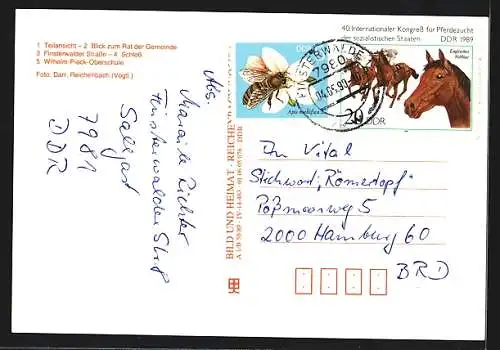 1 Teilansicht – 2 Blick zum Rat der Gemeinde
3 Finsterwalder Straße – 4 Schloß
5 Wilhelm-Pieck-Oberschule
Foto: Darr, Reichenbach (Vogtl.)
Abs.
Mareile Richter
Finsterwalder Str. 8
Sallgast
7981
DDR
BILD UND HEIMAT · REICHENBACH
DDR
Apis mellifica
40. Internationaler Kongreß für Pferdezucht
der sozialistischen Staaten
DDR 1989
Englisches
Vollblut
20
DDR
FINSTERWALDE
7980
04.05.90
An Vital
Stichwort „Römertopf"
Poßmoorweg 5
2000 Hamburg 60
BRD